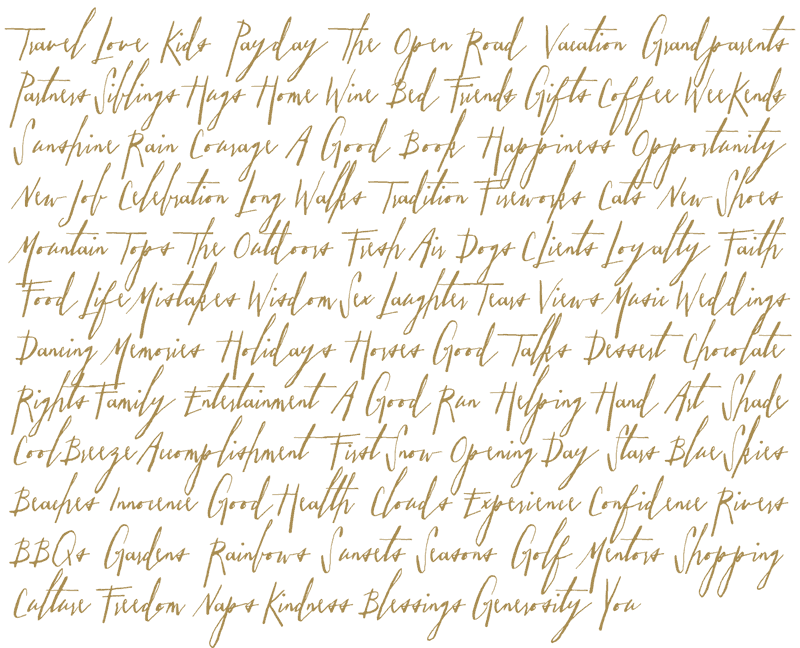 Travel Love Kids Payday The Open Road Vacation Grandparents
Partners Siblings Hugs Home Wine Bed Friends Gifts Coffee Weekends
Sunshine Rain Courage A Good Book Happiness Opportunity
New Job Celebration Long Walks Tradition Fireworks Cats New Shoes
Mountain Tops The Outdoors Fresh Air Dogs Clients Loyalty Faith
Food Life Mistakes Wisdom Sex Laughter Tears Views Music Weddings
Dancing Memories Holidays Horses Good Talks Dessert Chocolate
Rights Family Entertainment A Good Run Helping Hand Art Shade
Cool Breeze Accomplishment First Snow Opening Day Stars Blue Skies
Beaches Innocence Good Health Clouds Experience Confidence Rivers
BBQs Gardens Rainbows Sunsets Seasons Golf Mentors Shopping
Culture Freedom Naps Kindness Blessings Generosity You